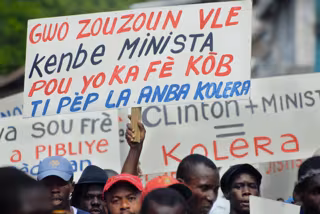 GWO ZOUZOUN VLE
KENBE MINISTA
POU YO KA FÈ KÒB
TI PÈP LA ANBA KOLERA
SOU FRÈ
A PIBLIYE
CLINTON + MINIST
=
KOLERA
JUSTIC